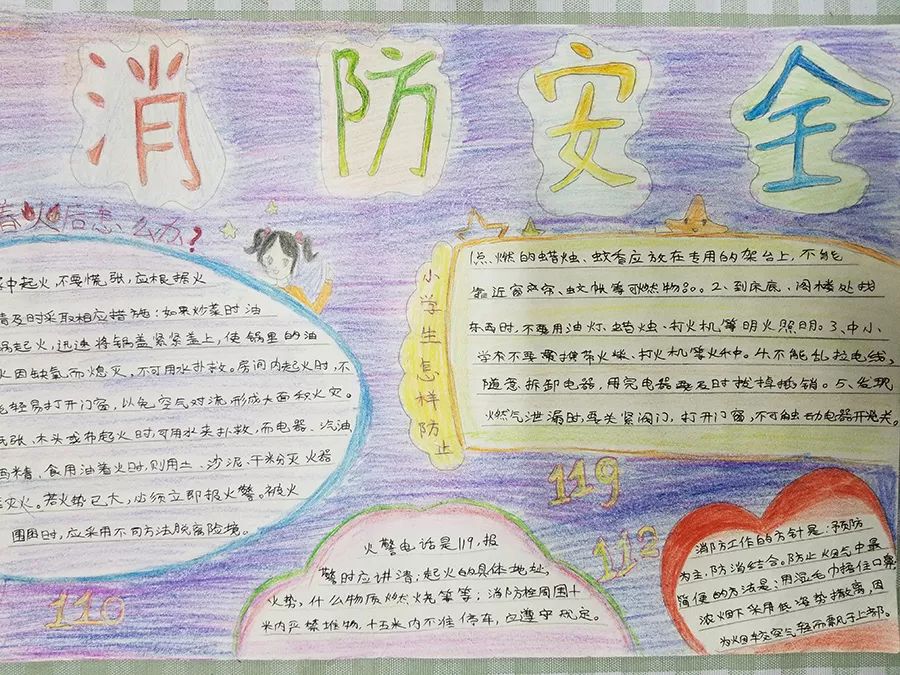 消防安全
着火后怎么办?
中起火,不要慌张,应根据火
情及时采取相应措施:如果炒菜时油
锅起火,迅速将锅盖紧紧盖上,使锅里的油
火因缺氧而熄灭,不可用水扑救。房间内起火时,不
轻易打开门窗,以免空气对流形成大面积火灾。
纸张、木头或布起火时,可用水来扑救,而电器、汽油
酒精、食用油着火时,则用土、沙泥、干粉灭火器
灭火。若火势已大,必须立即报火警。被火
围困时,应采用不同方法脱离险境。
小学生怎样防止
1点燃的蜡烛、蚊香应放在专用的架台上,不能
靠近窗帘、蚊帐等可燃物品。2、到床底、阁楼处找
东西时,不要用油灯、蜡烛、打火机等明火照明。3、中小
学生不要携带火柴、打火机等火种。4.不能乱拉电线,
随意拆卸电器,用完电器要及时拔掉插销。5、发现
燃气泄漏时,要关紧阀门,打开门窗,不可触动电器开关。
119
112
110
火警电话是119,报
警时应讲清;起火的具体地址,
火势,什么物质燃烧等等;消防栓周围十
米内严禁堆物,十五米内不准停车,应遵守规定。
消防工作的方针是:预防
为主,防消结合。防止烟气中最
简便的方法是:用湿毛巾捂住口鼻
浓烟下采用低姿势撤离,因
为烟较空气轻而飘于上部。